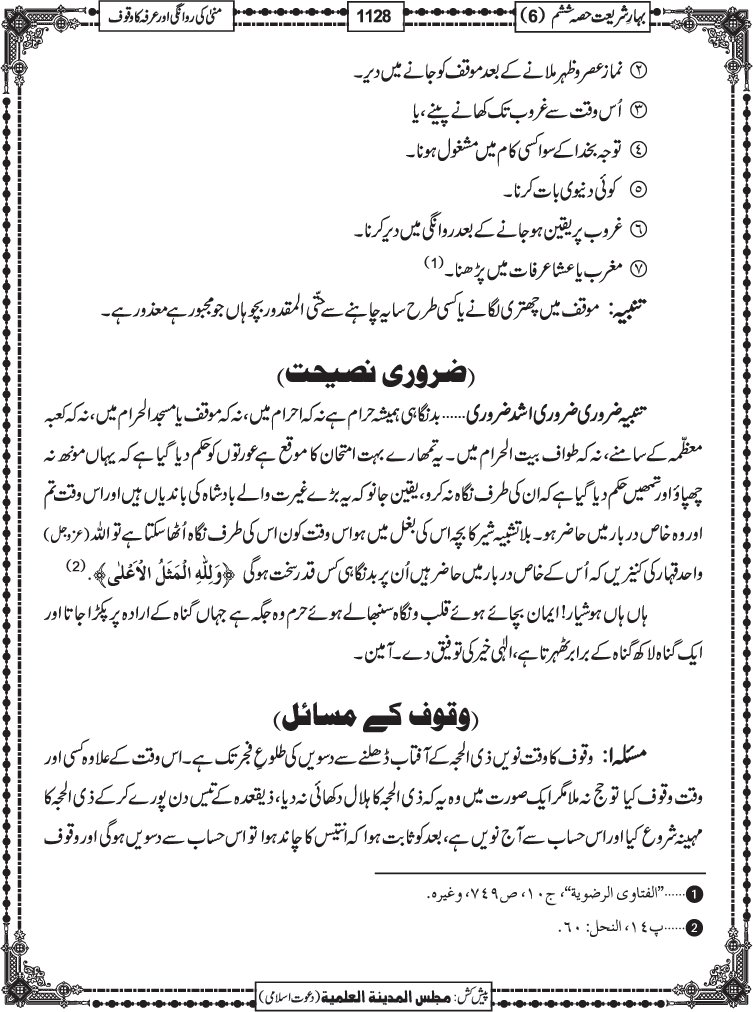 بہارِ شریعت حصہ ششم (6)
1128
منیٰ کی روانگی اور عرفہ کا وقوف
② نماز عصر و ظہر ملانے کے بعد موقف کو جانے میں دیر۔
③ اُس وقت سے غروب تک کھانے پینے، یا
④ توجہ بخدا کے سوا کسی کام میں مشغول ہونا۔
⑤ کوئی دنیوی بات کرنا۔
⑥ غروب پر یقین ہو جانے کے بعد روانگی میں دیر کرنا۔
⑦ مغرب یا عشا عرفات میں پڑھنا۔(1)
تنبیہ: موقف میں چھتری لگانے یا کسی طرح سایہ چاہنے سے حتّی المقدور بچو ہاں جو مجبور ہے معذور ہے۔
(ضروری نصیحت)
تنبیہ ضروری ضروری اشد ضروری...... بدنگاہی ہمیشہ حرام ہے نہ کہ احرام میں، نہ کہ موقف یا مسجد الحرام میں، نہ کہ کعبہ
معظّمہ کے سامنے، نہ کہ طواف بیت الحرام میں۔ یہ تمھارے بہت امتحان کا موقع ہے عورتوں کو حکم دیا گیا ہے کہ یہاں مونھ نہ
چھپاؤ اور تمھیں حکم دیا گیا ہے کہ ان کی طرف نگاہ نہ کرو، یقین جانو کہ یہ بڑے غیرت والے بادشاہ کی باندیاں ہیں اور اس وقت تم
اور وہ خاص دربار میں حاضر ہو۔ بلا تشبیہ شیر کا بچہ اس کی بغل میں ہو اس وقت کون اس کی طرف نگاہ اُٹھا سکتا ہے تو اللہ (عزوجل)
واحد قہار کی کنیزیں کہ اُس کے خاص دربار میں حاضر ہیں اُن پر بدنگاہی کس قدر سخت ہوگی ﴿وَلِلّٰهِ الْمَثَلُ الْاَعْلٰی﴾.(2)
ہاں ہاں ہوشیار! ایمان بچائے ہوئے قلب و نگاہ سنبھالے ہوئے حرم وہ جگہ ہے جہاں گناہ کے ارادہ پر پکڑا جاتا اور
ایک گناہ لاکھ گناہ کے برابر ٹھہرتا ہے، الٰہی خیر کی توفیق دے۔ آمین۔
(وقوف کے مسائل)
مسئلہ ۱: وقوف کا وقت نویں ذی الحجہ کے آفتاب ڈھلنے سے دسویں کی طلوعِ فجر تک ہے۔ اس وقت کے علاوہ کسی اور
وقت وقوف کیا تو حج نہ ملا مگر ایک صورت میں وہ یہ کہ ذی الحجہ کا ہلال دکھائی نہ دیا، ذیقعدہ کے تیس دن پورے کر کے ذی الحجہ کا
مہینہ شروع کیا اور اس حساب سے آج نویں ہے، بعد کو ثابت ہوا کہ انتیس کا چاند ہوا تو اس حساب سے دسویں ہوگی اور وقوف
1......"الفتاوی الرضویة"، ج۱۰، ص۷۴۹، وغیرہ.
2......پ۱۴، النحل: ۶۰.
پیش کش: مجلس المدینة العلمیة (دعوت اسلامی)